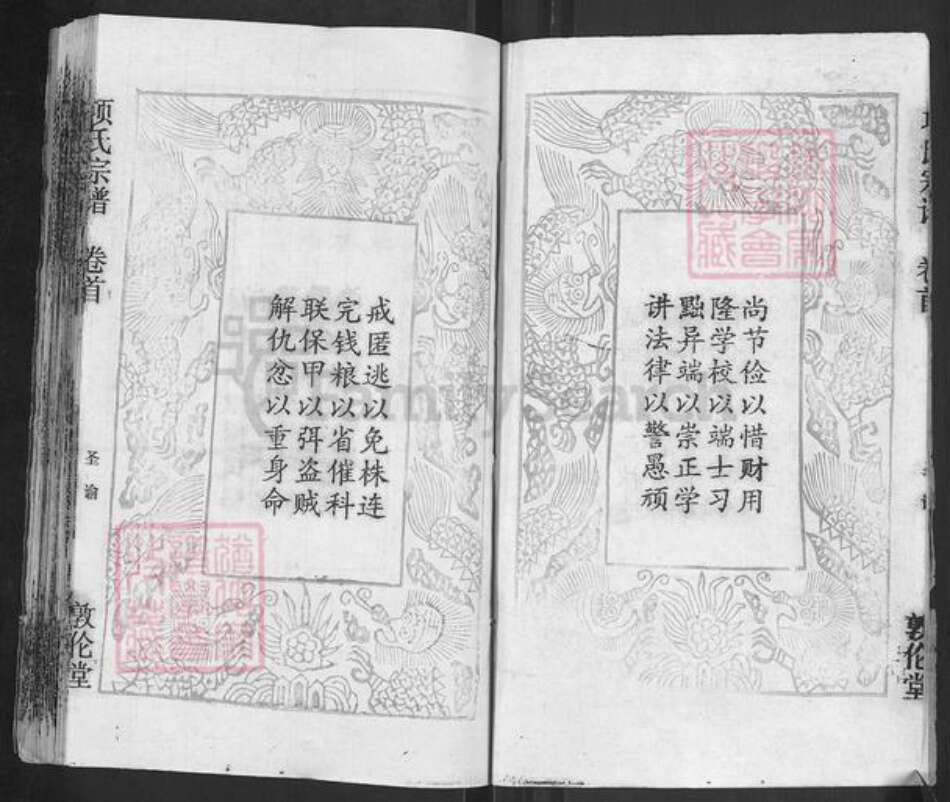 尚节俭以惜财用
隆学校以端士习
黜异端以崇正学
讲法律以警愚顽
敦伦堂
戒匿逃以免株连
完钱粮以省催科
联保甲以弭盗贼
解仇忿以重身命
项氏宗谱 卷首
圣谕
敦伦堂